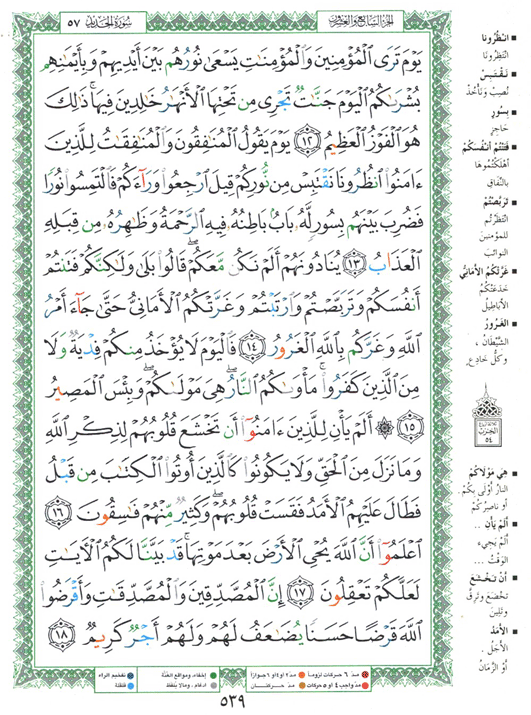 سُورَةُ الحَدِيد ٥٧
الجزء السابع والعشرون
يَوْمَ تَرَى ٱلْمُؤْمِنِينَ وَٱلْمُؤْمِنَٰتِ يَسْعَىٰ نُورُهُم بَيْنَ أَيْدِيهِمْ وَبِأَيْمَٰنِهِم
بُشْرَىٰكُمُ ٱلْيَوْمَ جَنَّٰتٌ تَجْرِى مِن تَحْتِهَا ٱلْأَنْهَٰرُ خَٰلِدِينَ فِيهَا ۚ ذَٰلِكَ
هُوَ ٱلْفَوْزُ ٱلْعَظِيمُ ١٢ يَوْمَ يَقُولُ ٱلْمُنَٰفِقُونَ وَٱلْمُنَٰفِقَٰتُ لِلَّذِينَ
ءَامَنُوا۟ ٱنظُرُونَا نَقْتَبِسْ مِن نُّورِكُمْ قِيلَ ٱرْجِعُوا۟ وَرَآءَكُمْ فَٱلْتَمِسُوا۟ نُورًا
فَضُرِبَ بَيْنَهُم بِسُورٍ لَّهُۥ بَابٌۢ بَاطِنُهُۥ فِيهِ ٱلرَّحْمَةُ وَظَٰهِرُهُۥ مِن قِبَلِهِ
ٱلْعَذَابُ ١٣ يُنَادُونَهُمْ أَلَمْ نَكُن مَّعَكُمْ ۖ قَالُوا۟ بَلَىٰ وَلَٰكِنَّكُمْ فَتَنتُمْ
أَنفُسَكُمْ وَتَرَبَّصْتُمْ وَٱرْتَبْتُمْ وَغَرَّتْكُمُ ٱلْأَمَانِىُّ حَتَّىٰ جَآءَ أَمْرُ
ٱللَّهِ وَغَرَّكُم بِٱللَّهِ ٱلْغَرُورُ ١٤ فَٱلْيَوْمَ لَا يُؤْخَذُ مِنكُمْ فِدْيَةٌ وَلَا
مِنَ ٱلَّذِينَ كَفَرُوا۟ ۚ مَأْوَىٰكُمُ ٱلنَّارُ ۖ هِىَ مَوْلَىٰكُمْ ۖ وَبِئْسَ ٱلْمَصِيرُ
١٥ ۞ أَلَمْ يَأْنِ لِلَّذِينَ ءَامَنُوٓا۟ أَن تَخْشَعَ قُلُوبُهُمْ لِذِكْرِ ٱللَّهِ
وَمَا نَزَلَ مِنَ ٱلْحَقِّ وَلَا يَكُونُوا۟ كَٱلَّذِينَ أُوتُوا۟ ٱلْكِتَٰبَ مِن قَبْلُ
فَطَالَ عَلَيْهِمُ ٱلْأَمَدُ فَقَسَتْ قُلُوبُهُمْ ۖ وَكَثِيرٌ مِّنْهُمْ فَٰسِقُونَ ١٦
ٱعْلَمُوٓا۟ أَنَّ ٱللَّهَ يُحْىِ ٱلْأَرْضَ بَعْدَ مَوْتِهَا ۚ قَدْ بَيَّنَّا لَكُمُ ٱلْءَايَٰتِ
لَعَلَّكُمْ تَعْقِلُونَ ١٧ إِنَّ ٱلْمُصَّدِّقِينَ وَٱلْمُصَّدِّقَٰتِ وَأَقْرَضُوا۟
ٱللَّهَ قَرْضًا حَسَنًا يُضَٰعَفُ لَهُمْ وَلَهُمْ أَجْرٌ كَرِيمٌ ١٨
■ انْظُرُونَا
انْتَظِرُونَا
■ نَقْتَبِسْ
نُصِبْ وَنَأْخُذْ
■ بِسُورٍ
حَاجِزٍ
■ فَتَنْتُمْ أَنْفُسَكُمْ
أَهْلَكْتُمُوهَا
بِالنِّفَاقِ
■ تَرَبَّصْتُمْ
انْتَظَرْتُمْ
لِلمُؤْمِنِينَ
النَّوائِبَ
■ غَرَّتْكُمُ الأَمَانِيُّ
خَدَعَتْكُمُ
الأَبَاطِيلُ
■ الغَرُورُ
الشَّيْطَانُ ،
وكُلُّ خَادِعٍ
الحزب
٥٤
■ هِيَ مَوْلَاكُمْ
النَّارُ أَوْلَى بِكُمْ.
أَو نَاصِرُكُمْ
■ أَلَمْ يَأْنِ ..
أَلَمْ يَجِيءِ
الوَقْتُ ..
■ أَنْ تَخْشَعَ
تَخْضَعَ وَتَرِقَّ
وَتَلِينَ
■ الأَمَدُ
الأَجَلُ .
أَوِ الزَّمَانُ
مدّ ٦ حركات لزوماً ● مدّ ٢ أو ٤ أو ٦ جوازاً
مدّ واجب ٤ أو ٥ حركات ● مدّ حركتان
إخفاء، ومواقع الغُنَّة
ادغام، وما لا يُلفظ
تفخيم الراء
قلقلة
٥٣٩